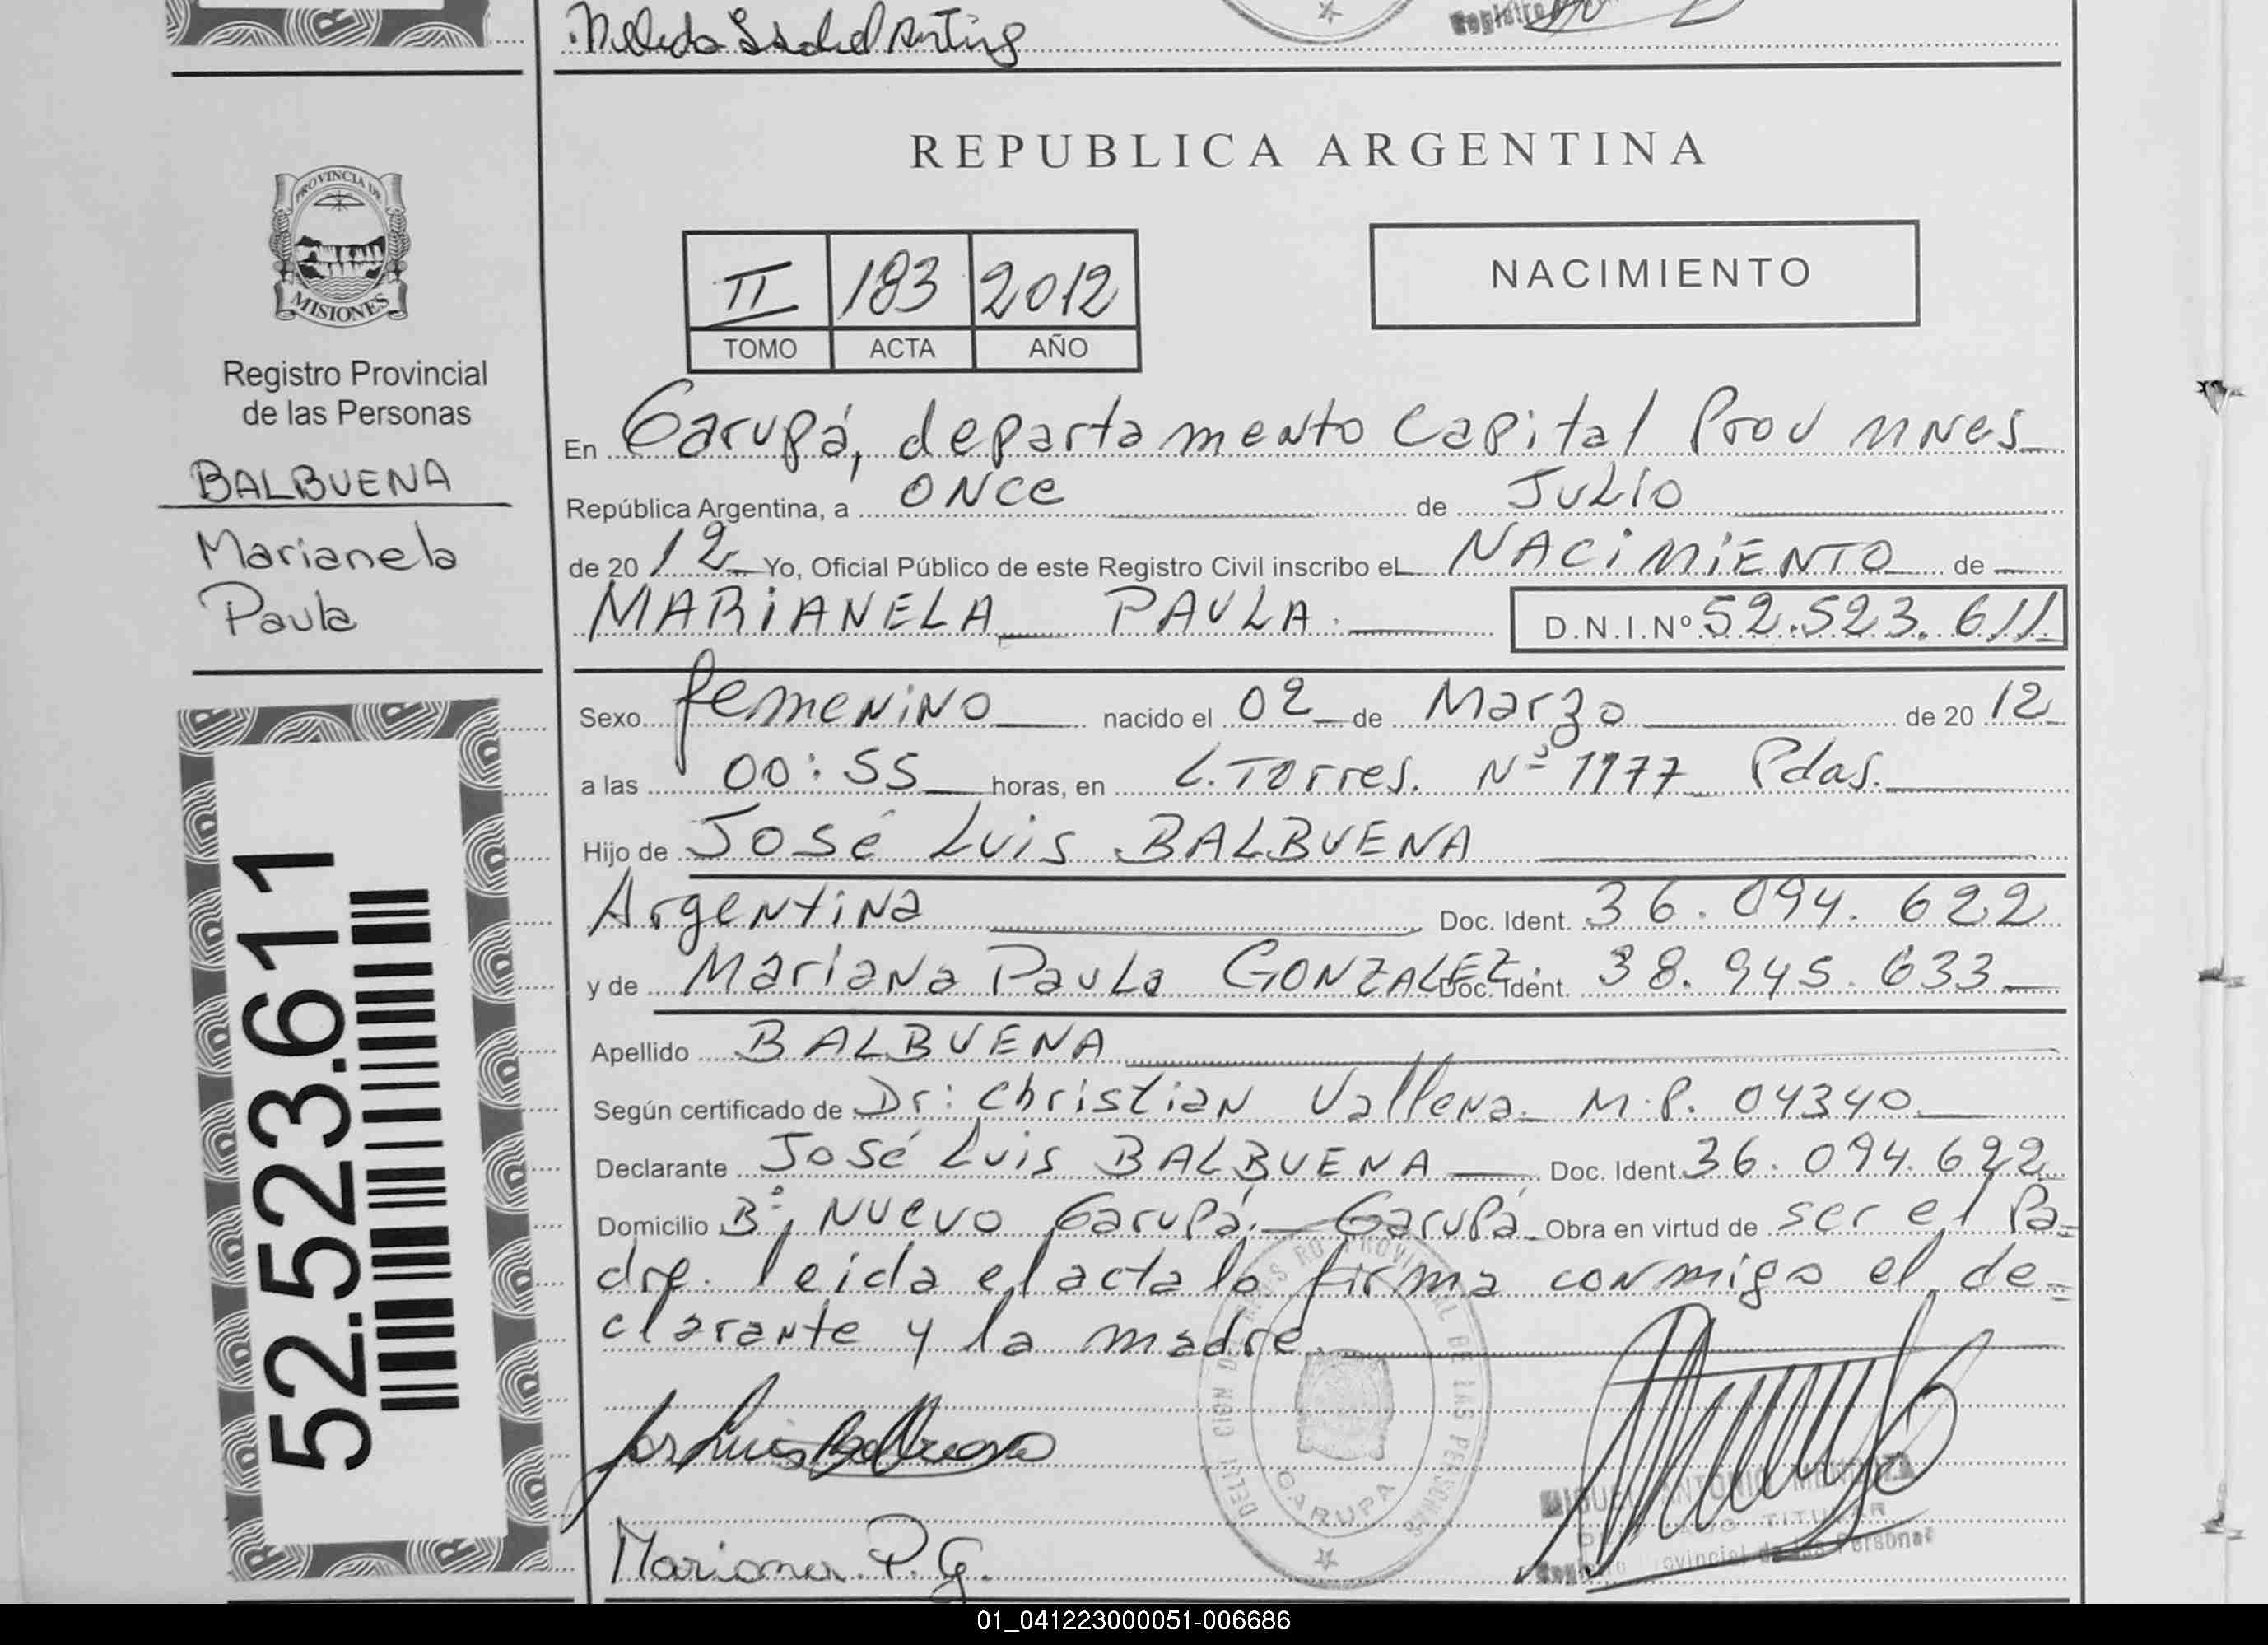 REPUBLICA ARGENTINA
PROVINCIA DE
MISIONES
Registro Provincial
de las Personas
BALBUENA
Marianela
Paula
52.523.611
II 183 2012
TOMO ACTA AÑO
NACIMIENTO
En Garupá, departamento Capital Prov Mnes
República Argentina, a ONCE de JULIO
de 20 12 Yo, Oficial Público de este Registro Civil inscribo el NACIMIENTO de
MARIANELA PAULA. D.N.I.Nº 52.523.611
Sexo femenino nacido el 02 de Marzo de 20 12
a las 00:55 horas, en L. Torres. Nº 1177 Pdas.
Hijo de José Luis BALBUENA
Argentina Doc. Ident. 36.094.622
y de Mariana Paula GONZALEZ Doc. Ident. 38.945.633
Apellido BALBUENA
Según certificado de Dr: Christian M.P. 04340
Declarante José Luis BALBUENA Doc. Ident. 36.094.622
Domicilio Bº, Nuevo Garupá. Garupá Obra en virtud de ser el Pa=
dre. leida el acta la firma conmigo el de=
clarante y la madre.
Jos Luis Balbuena
Mariana P. G.
PROVINCIAL DE LAS PERSONAS
GARUPA
ANTONIO
TITULAR
Provincial de las Personas
01_041223000051-006686